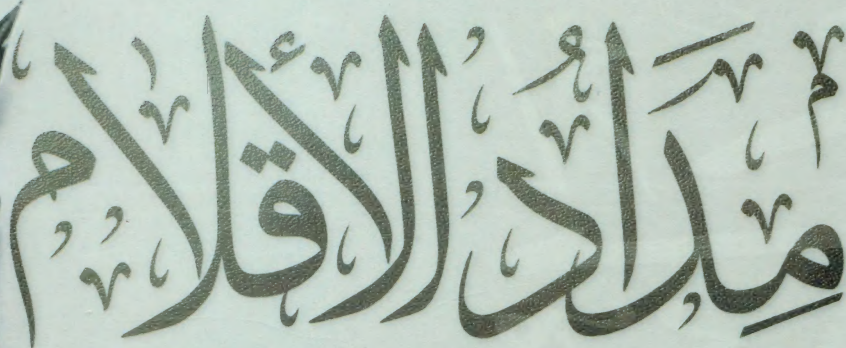 مِدَادُ الأقلام